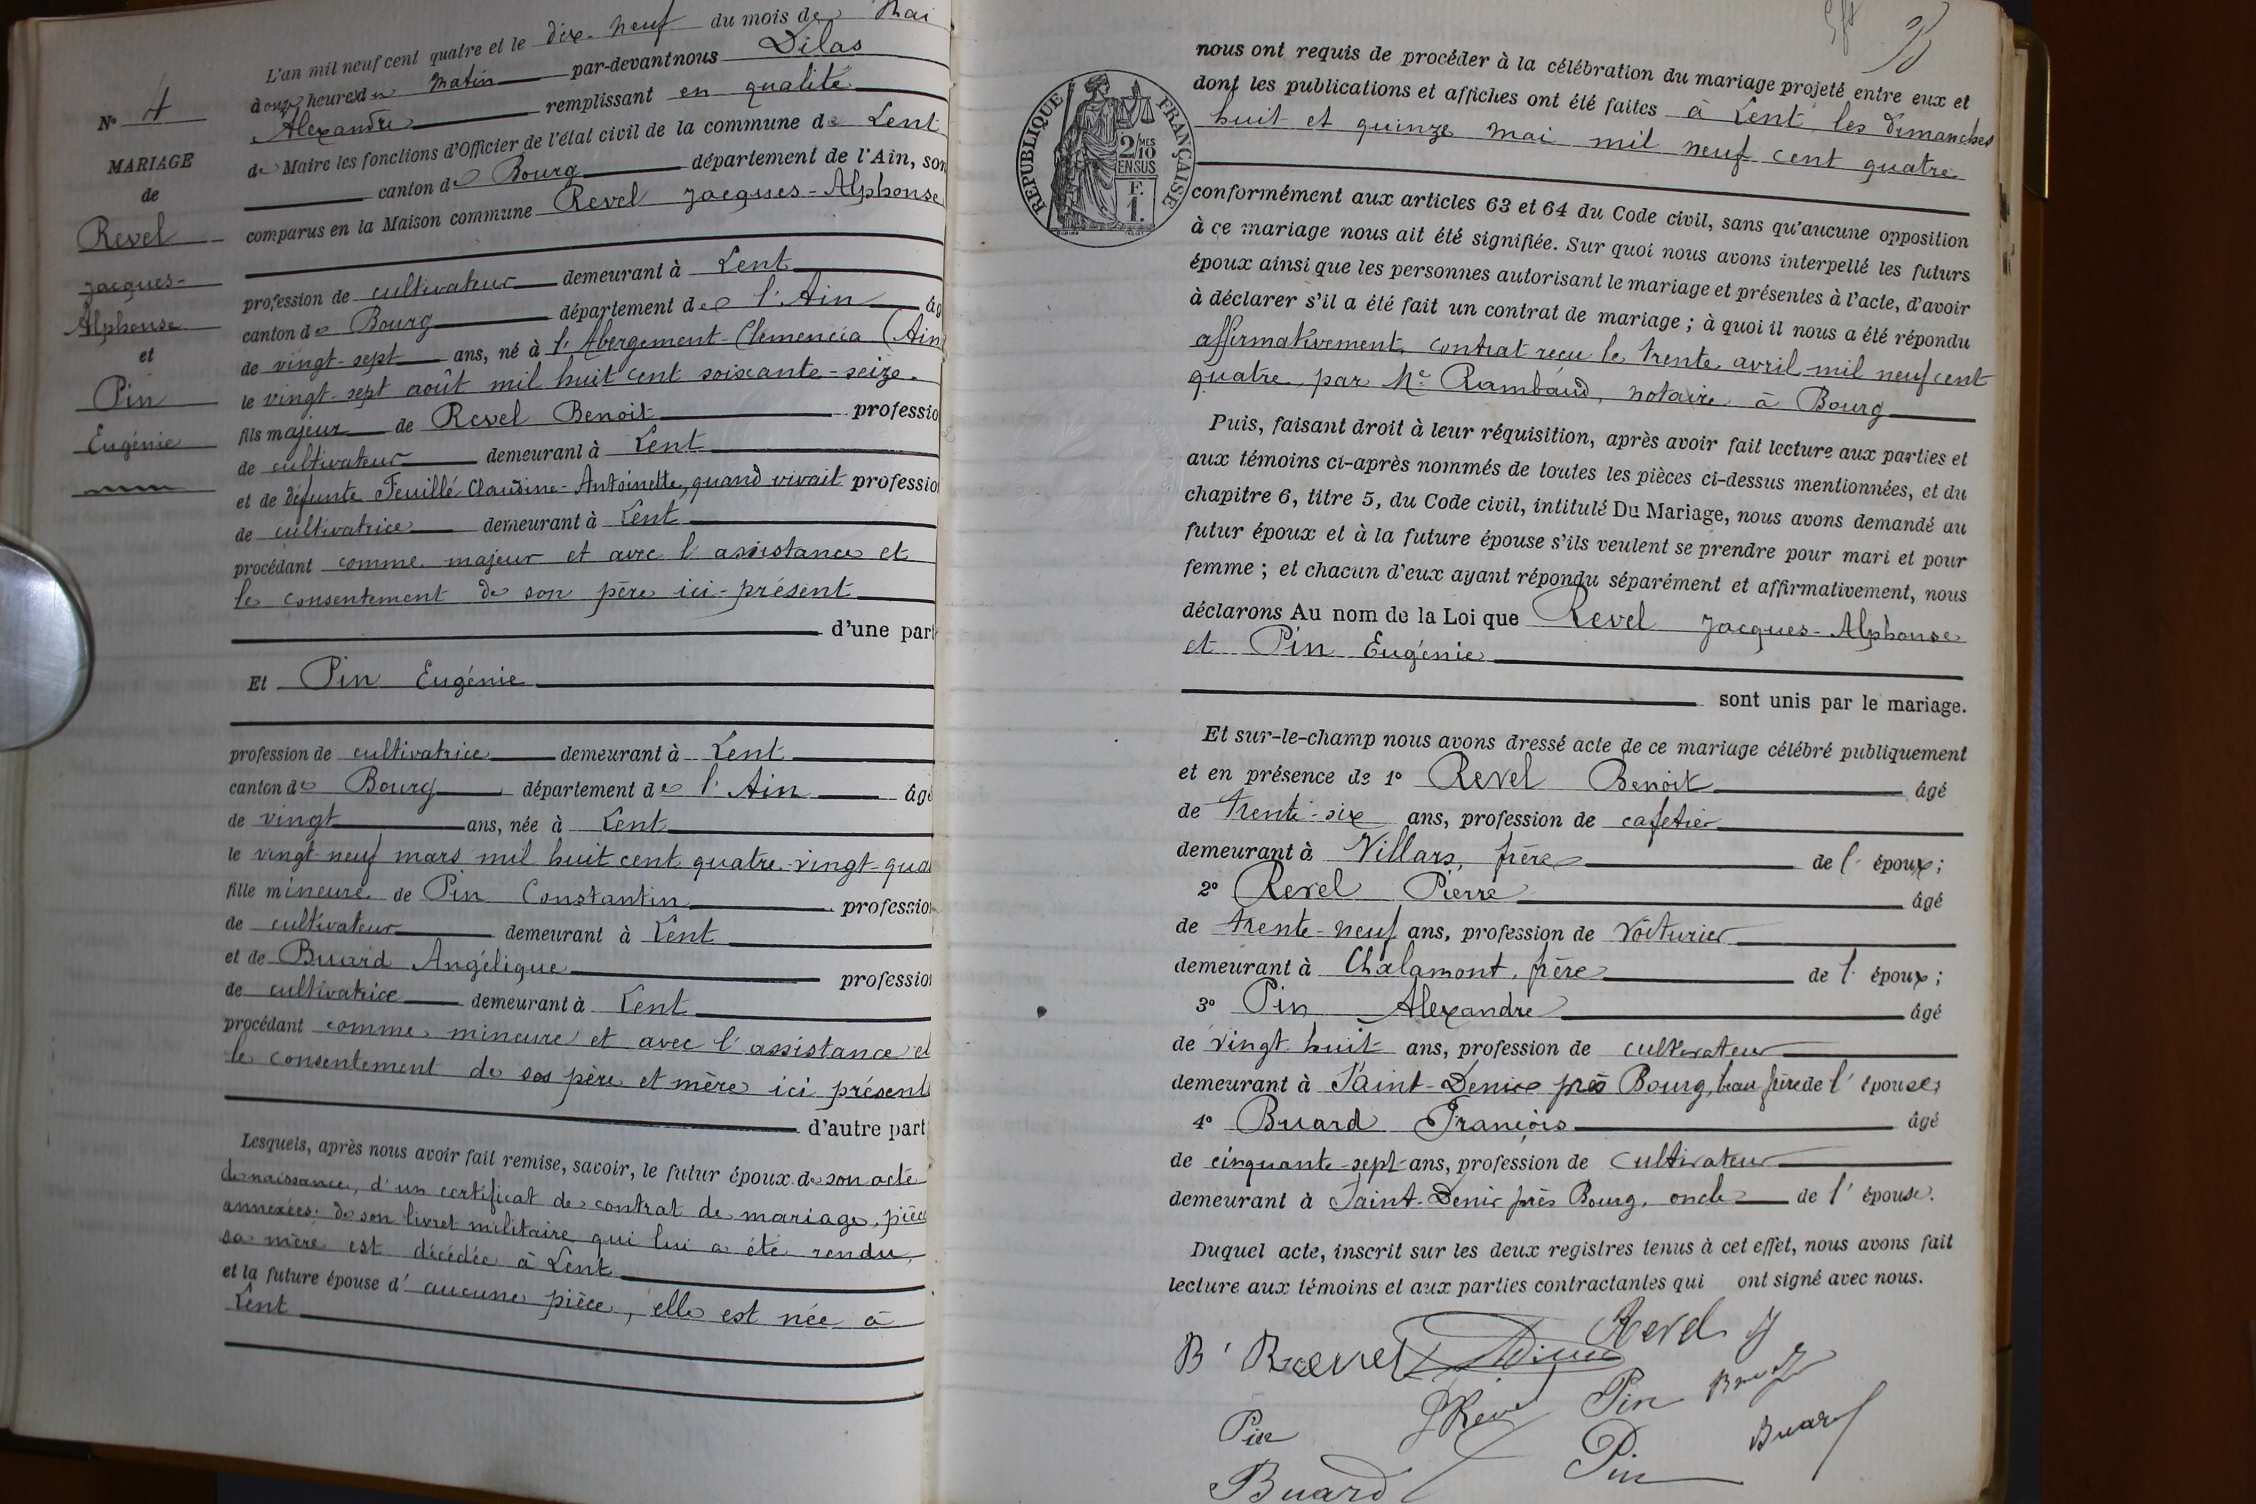 L'an mil neuf cent quatre et le dix-neuf du mois de Mai
à onze heures du matin par-devant nous Dilas
Alexandre remplissant en qualité
de Maire les fonctions d'Officier de l'état civil de la commune de Lent
canton de Bourg département de l'Ain, son
comparus en la Maison commune Revel Jacques-Alphonse
profession de cultivateur demeurant à Lent
canton de Bourg département de l'Ain âg
de vingt-sept ans, né à l'Abergement-Clémencia (Ain
le vingt-sept août mil huit cent soixante-seize
fils majeur de Revel Benoit professio
de cultivateur demeurant à Lent
et de défunte Feuillé Claudine-Antoinette, quand vivait professio
de cultivatrice demeurant à Lent
procédant comme majeur et avec l'assistance et
le consentement de son père ici-présent
d'une part
Et Pin Eugénie
profession de cultivatrice demeurant à Lent
canton de Bourg département de l'Ain âgé
de vingt ans, née à Lent
le vingt-neuf mars mil huit cent quatre-vingt-qua
fille mineure de Pin Constantin profession
de cultivateur demeurant à Lent
et de Buard Angélique profession
de cultivatrice demeurant à Lent
procédant comme mineure et avec l'assistance et
le consentement de ses père et mère ici présents
d'autre part
Lesquels, après nous avoir fait remise, savoir, le futur époux de son acte
de naissance, d'un certificat de contrat de mariage, pièc
annexées; de son livret militaire qui lui a été rendu,
sa mère est décédée à Lent
et la future épouse d'aucune pièce, elle est née à
Lent
N° 4
MARIAGE
de
Revel
Jacques-
Alphonse
et
Pin
Eugénie
nous ont requis de procéder à la célébration du mariage projeté entre eux et
dont les publications et affiches ont été faites à Lent les dimanches
huit et quinze mai mil neuf cent quatre
conformément aux articles 63 et 64 du Code civil, sans qu'aucune opposition
à ce mariage nous ait été signifiée. Sur quoi nous avons interpellé les futurs
époux ainsi que les personnes autorisant le mariage et présentes à l'acte, d'avoir
à déclarer s'il a été fait un contrat de mariage ; à quoi il nous a été répondu
affirmativement, contrat reçu le trente avril mil neuf cent
quatre par Me Rambaud, notaire à Bourg
Puis, faisant droit à leur réquisition, après avoir fait lecture aux parties et
aux témoins ci-après nommés de toutes les pièces ci-dessus mentionnées, et du
chapitre 6, titre 5, du Code civil, intitulé Du Mariage, nous avons demandé au
futur époux et à la future épouse s'ils veulent se prendre pour mari et pour
femme ; et chacun d'eux ayant répondu séparément et affirmativement, nous
déclarons Au nom de la Loi que Revel Jacques-Alphonse
et Pin Eugénie
sont unis par le mariage.
Et sur-le-champ nous avons dressé acte de ce mariage célébré publiquement
et en présence de 1° Revel Benoit âgé
de trente-six ans, profession de cafetier
demeurant à Villars, frère de l'époux ;
2° Revel Pierre âgé
de trente-neuf ans, profession de voiturier
demeurant à Chalamont, frère de l'époux ;
3° Pin Alexandre âgé
de vingt huit ans, profession de cultivateur
demeurant à Saint-Denis près Bourg, beau frère de l'épouse;
4° Buard François âgé
de cinquante-sept ans, profession de cultivateur
demeurant à Saint-Denis près Bourg, oncle de l'épouse.
Duquel acte, inscrit sur les deux registres tenus à cet effet, nous avons fait
lecture aux témoins et aux parties contractantes qui ont signé avec nous.
B Revel Revel J
Pin P Revel Pin
Buard Pin Buard
RÉPUBLIQUE FRANÇAISE
2/10 MES
EN SUS
F.
1.